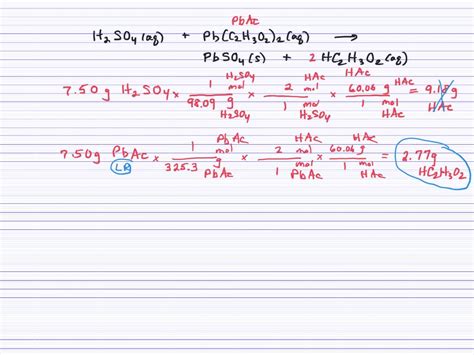 PbAc
H₂SO₄(aq) + Pb(C₂H₃O₂)₂(aq) →
PbSO₄(s) + 2 HC₂H₃O₂(aq)
7.50 g H₂SO₄ × 1 mol H₂SO₄ / 98.09 g H₂SO₄ × 2 mol HAc / 1 mol H₂SO₄ × 60.06 g HAc / 1 mol HAc = 9.18 g HAc
7.50 g PbAc × 1 mol PbAc / 325.3 g PbAc × 2 mol HAc / 1 mol PbAc × 60.06 g HAc / 1 mol HAc = 2.77 g HC₂H₃O₂
LR